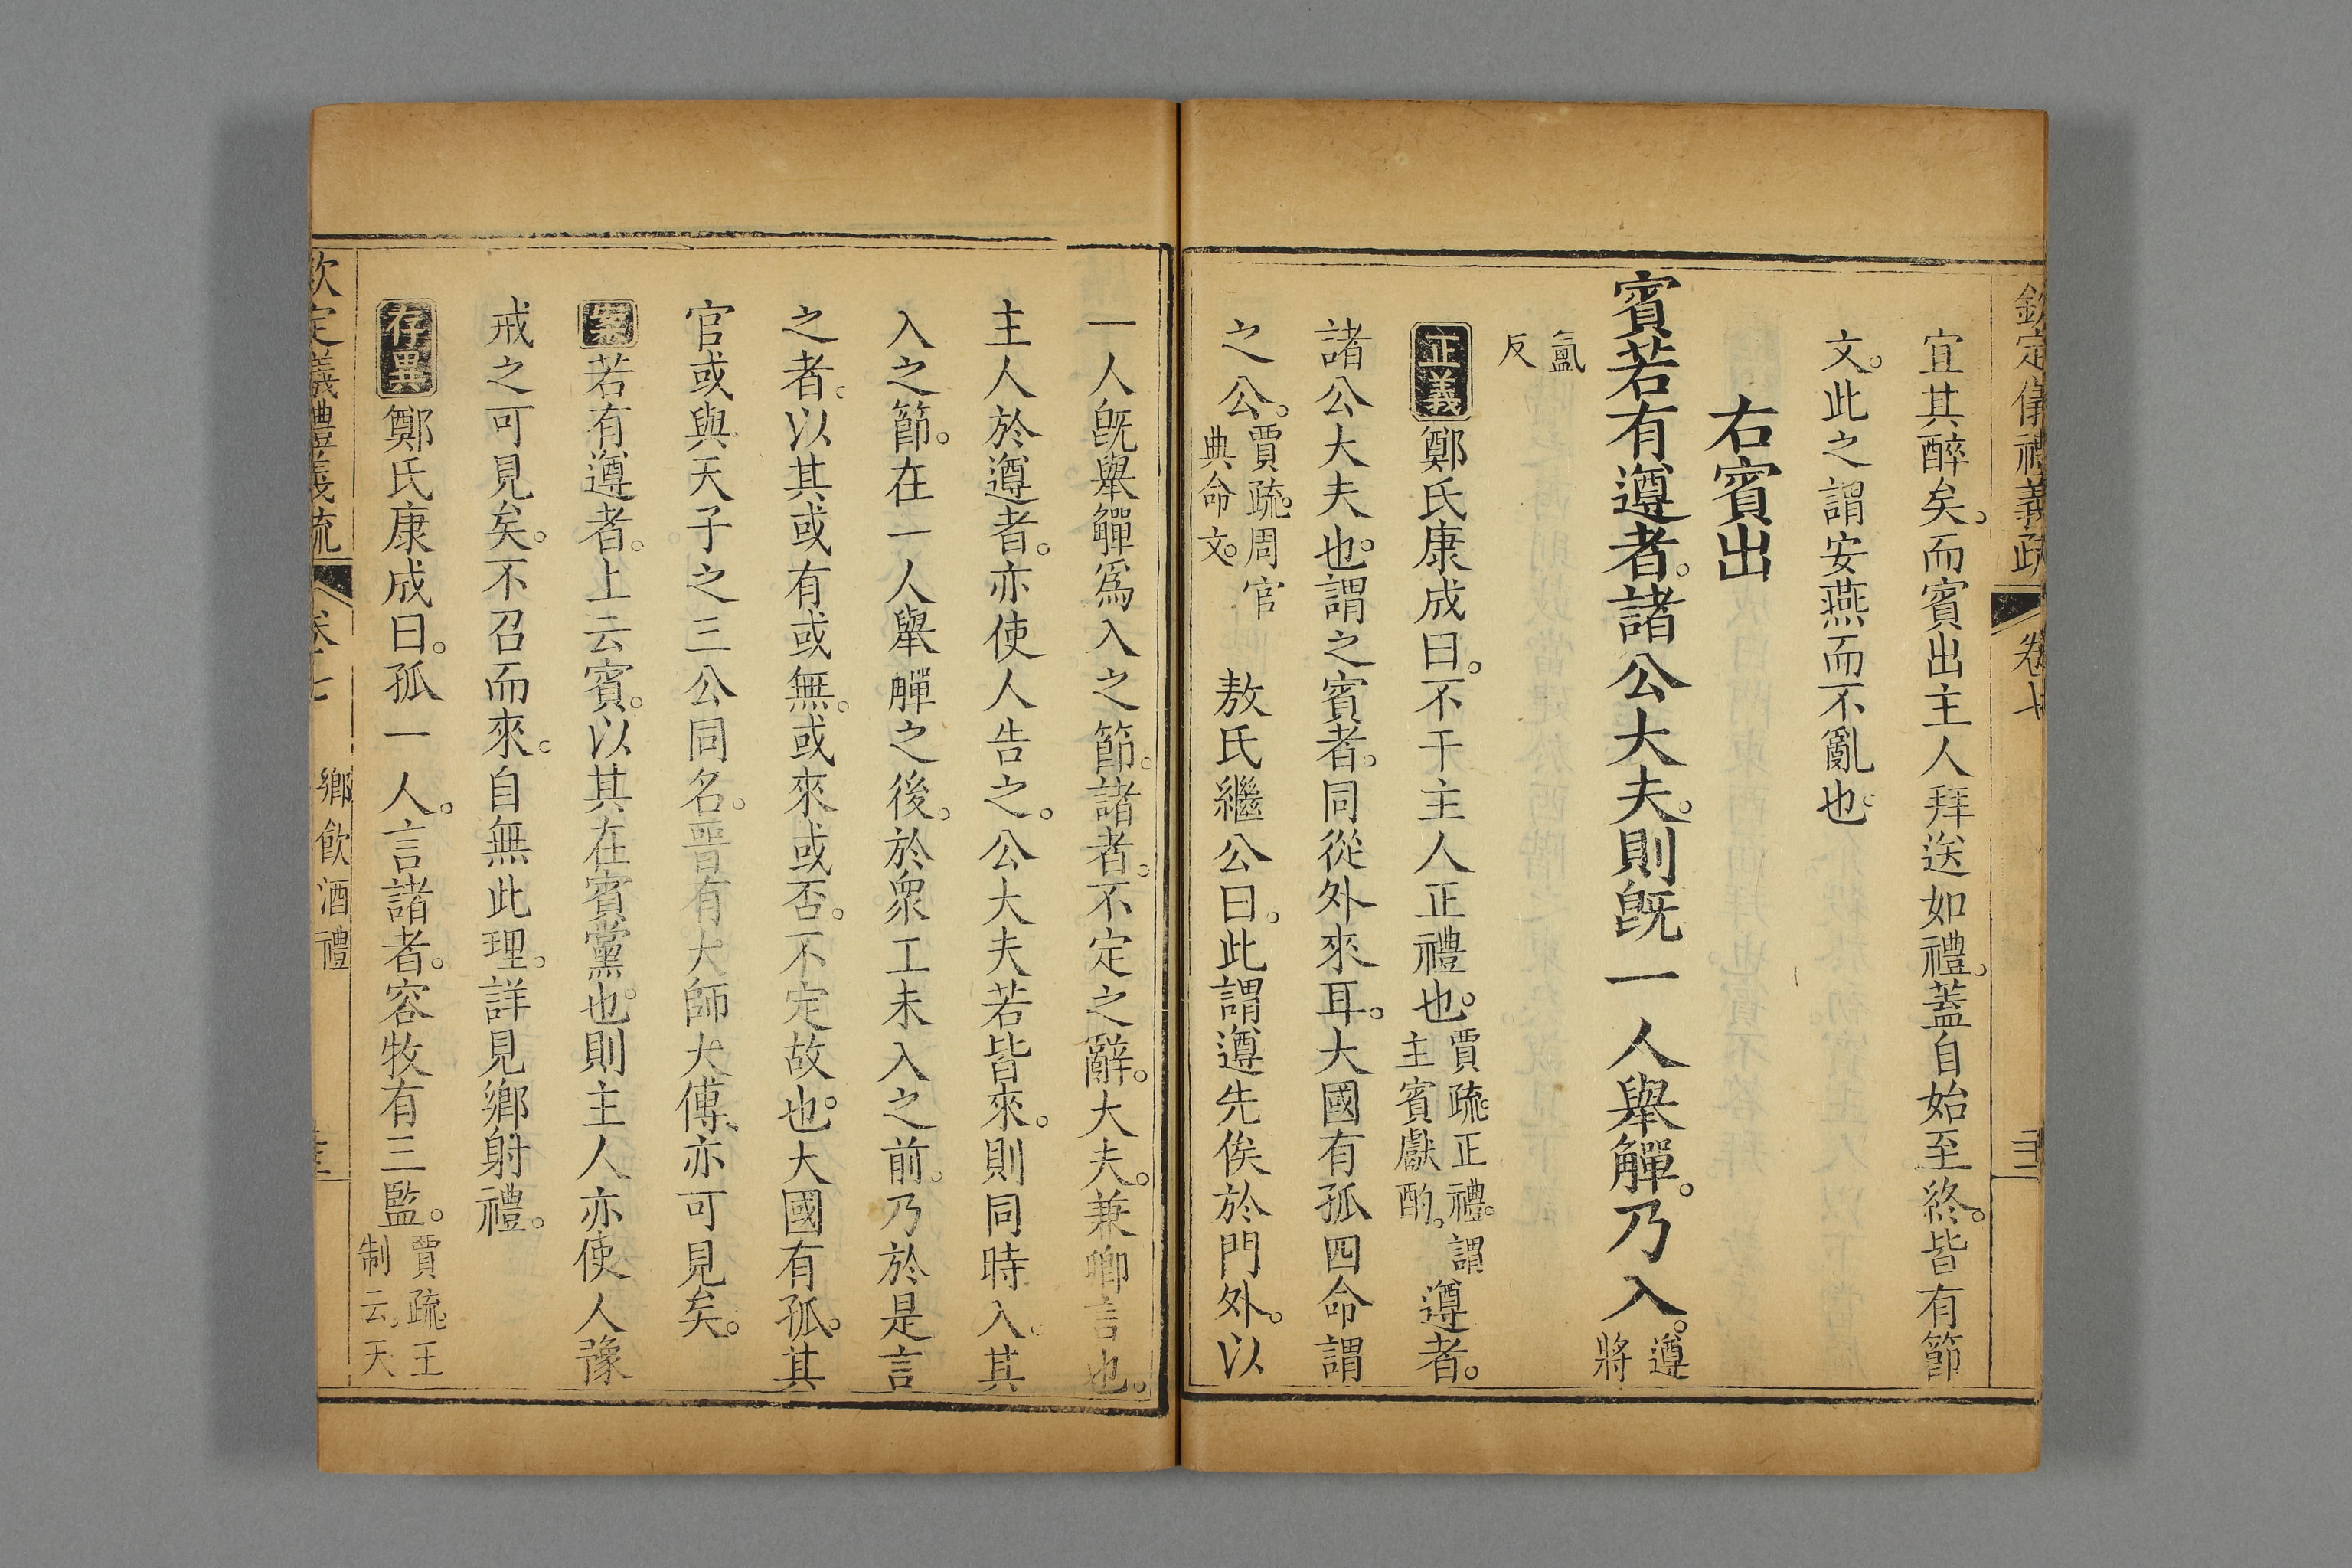 欽定儀禮義疏 卷七
宜其醉矣。而賓出主人拜送如禮。蓋自始至終。皆有節
文。此之謂安燕而不亂也。
右賓出
賓若有遵者。諸公大夫。則旣一人舉觶。乃入。遵
將
氳
反
正義鄭氏康成曰。不干主人正禮也。賈疏。正禮。謂
主賓獻酌。
遵者。
諸公大夫也。謂之賓者。同從外來耳。大國有孤四命謂
之公。賈疏。周官
典命文。
敖氏繼公曰。此謂遵先俟於門外。以
一人旣舉觶爲入之節。諸者。不定之辭。大夫。兼卿言也。
主人於遵者。亦使人告之。公大夫若皆來。則同時入。其
入之節。在一人舉觶之後。於衆工未入之前。乃於是言
之者。以其或有或無。或來或否。不定故也。大國有孤。其
官或與天子之三公同名。晉有大師大傅、亦可見矣。
案若有遵者。上云賓。以其在賓黨也。則主人亦使人豫
戒之可見矣。不召而來。自無此理。詳見鄉射禮。
存異鄭氏康成曰。孤一人。言諸者。容牧有三監。賈疏。王
制云。天
欽定儀禮義疏 卷七 鄉飲酒禮